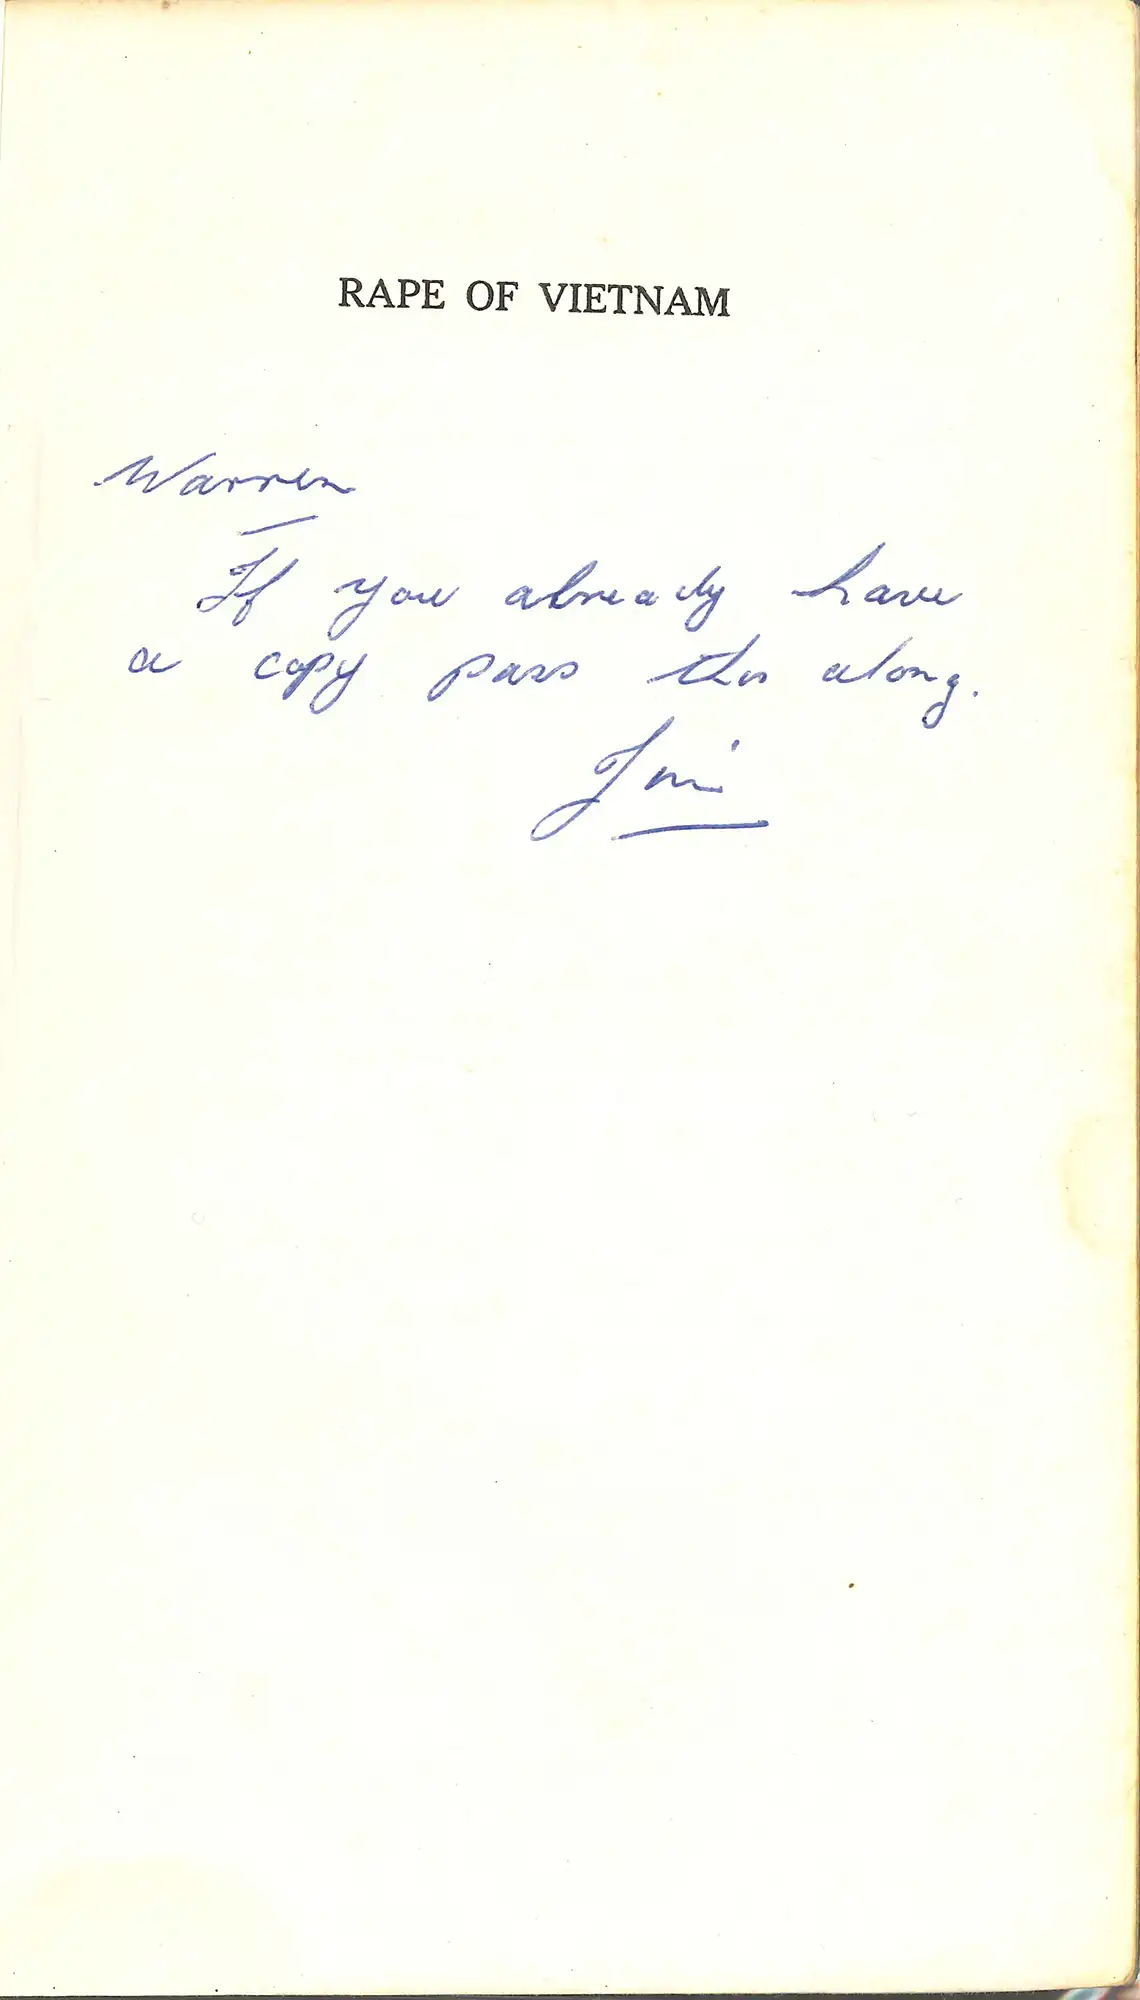 RAPE OF VIETNAM
Warren
If you already have
a copy pass this along.
Jim